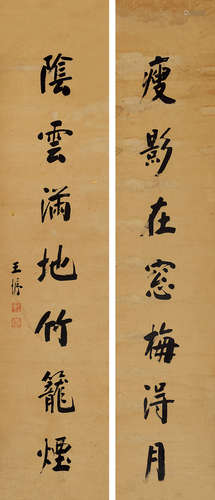 瘦影在窓梅得月
陰雲滿地竹籠煙
王脩